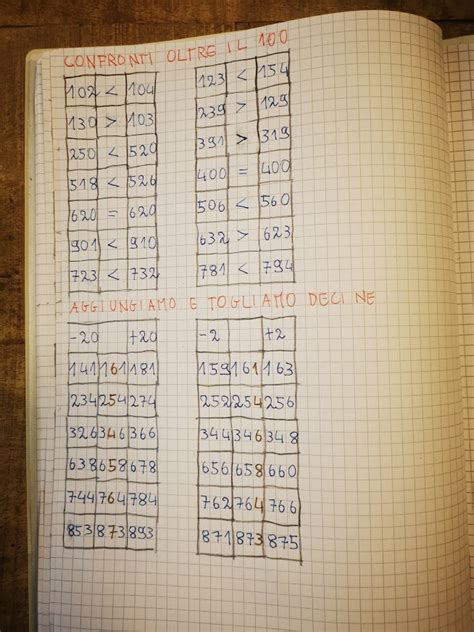 CONFRONTI OLTRE IL 100
102 < 104 123 < 154
130 > 103 239 > 129
250 < 520 391 > 319
518 < 526 400 = 400
620 = 620 506 < 560
901 < 910 632 > 623
723 < 732 781 < 794
AGGIUNGIAMO E TOGLIAMO DECINE
-20 +20 -2 +2
141 161 181 159 161 163
234 254 274 252 254 256
326 346 366 344 346 348
638 658 678 656 658 660
744 764 784 762 764 766
853 873 893 871 873 875